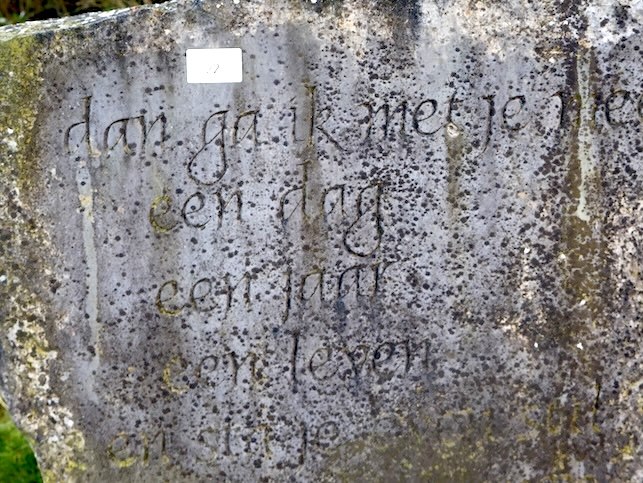 dan ga ik met je me
een dag
een jaar
een leven
en